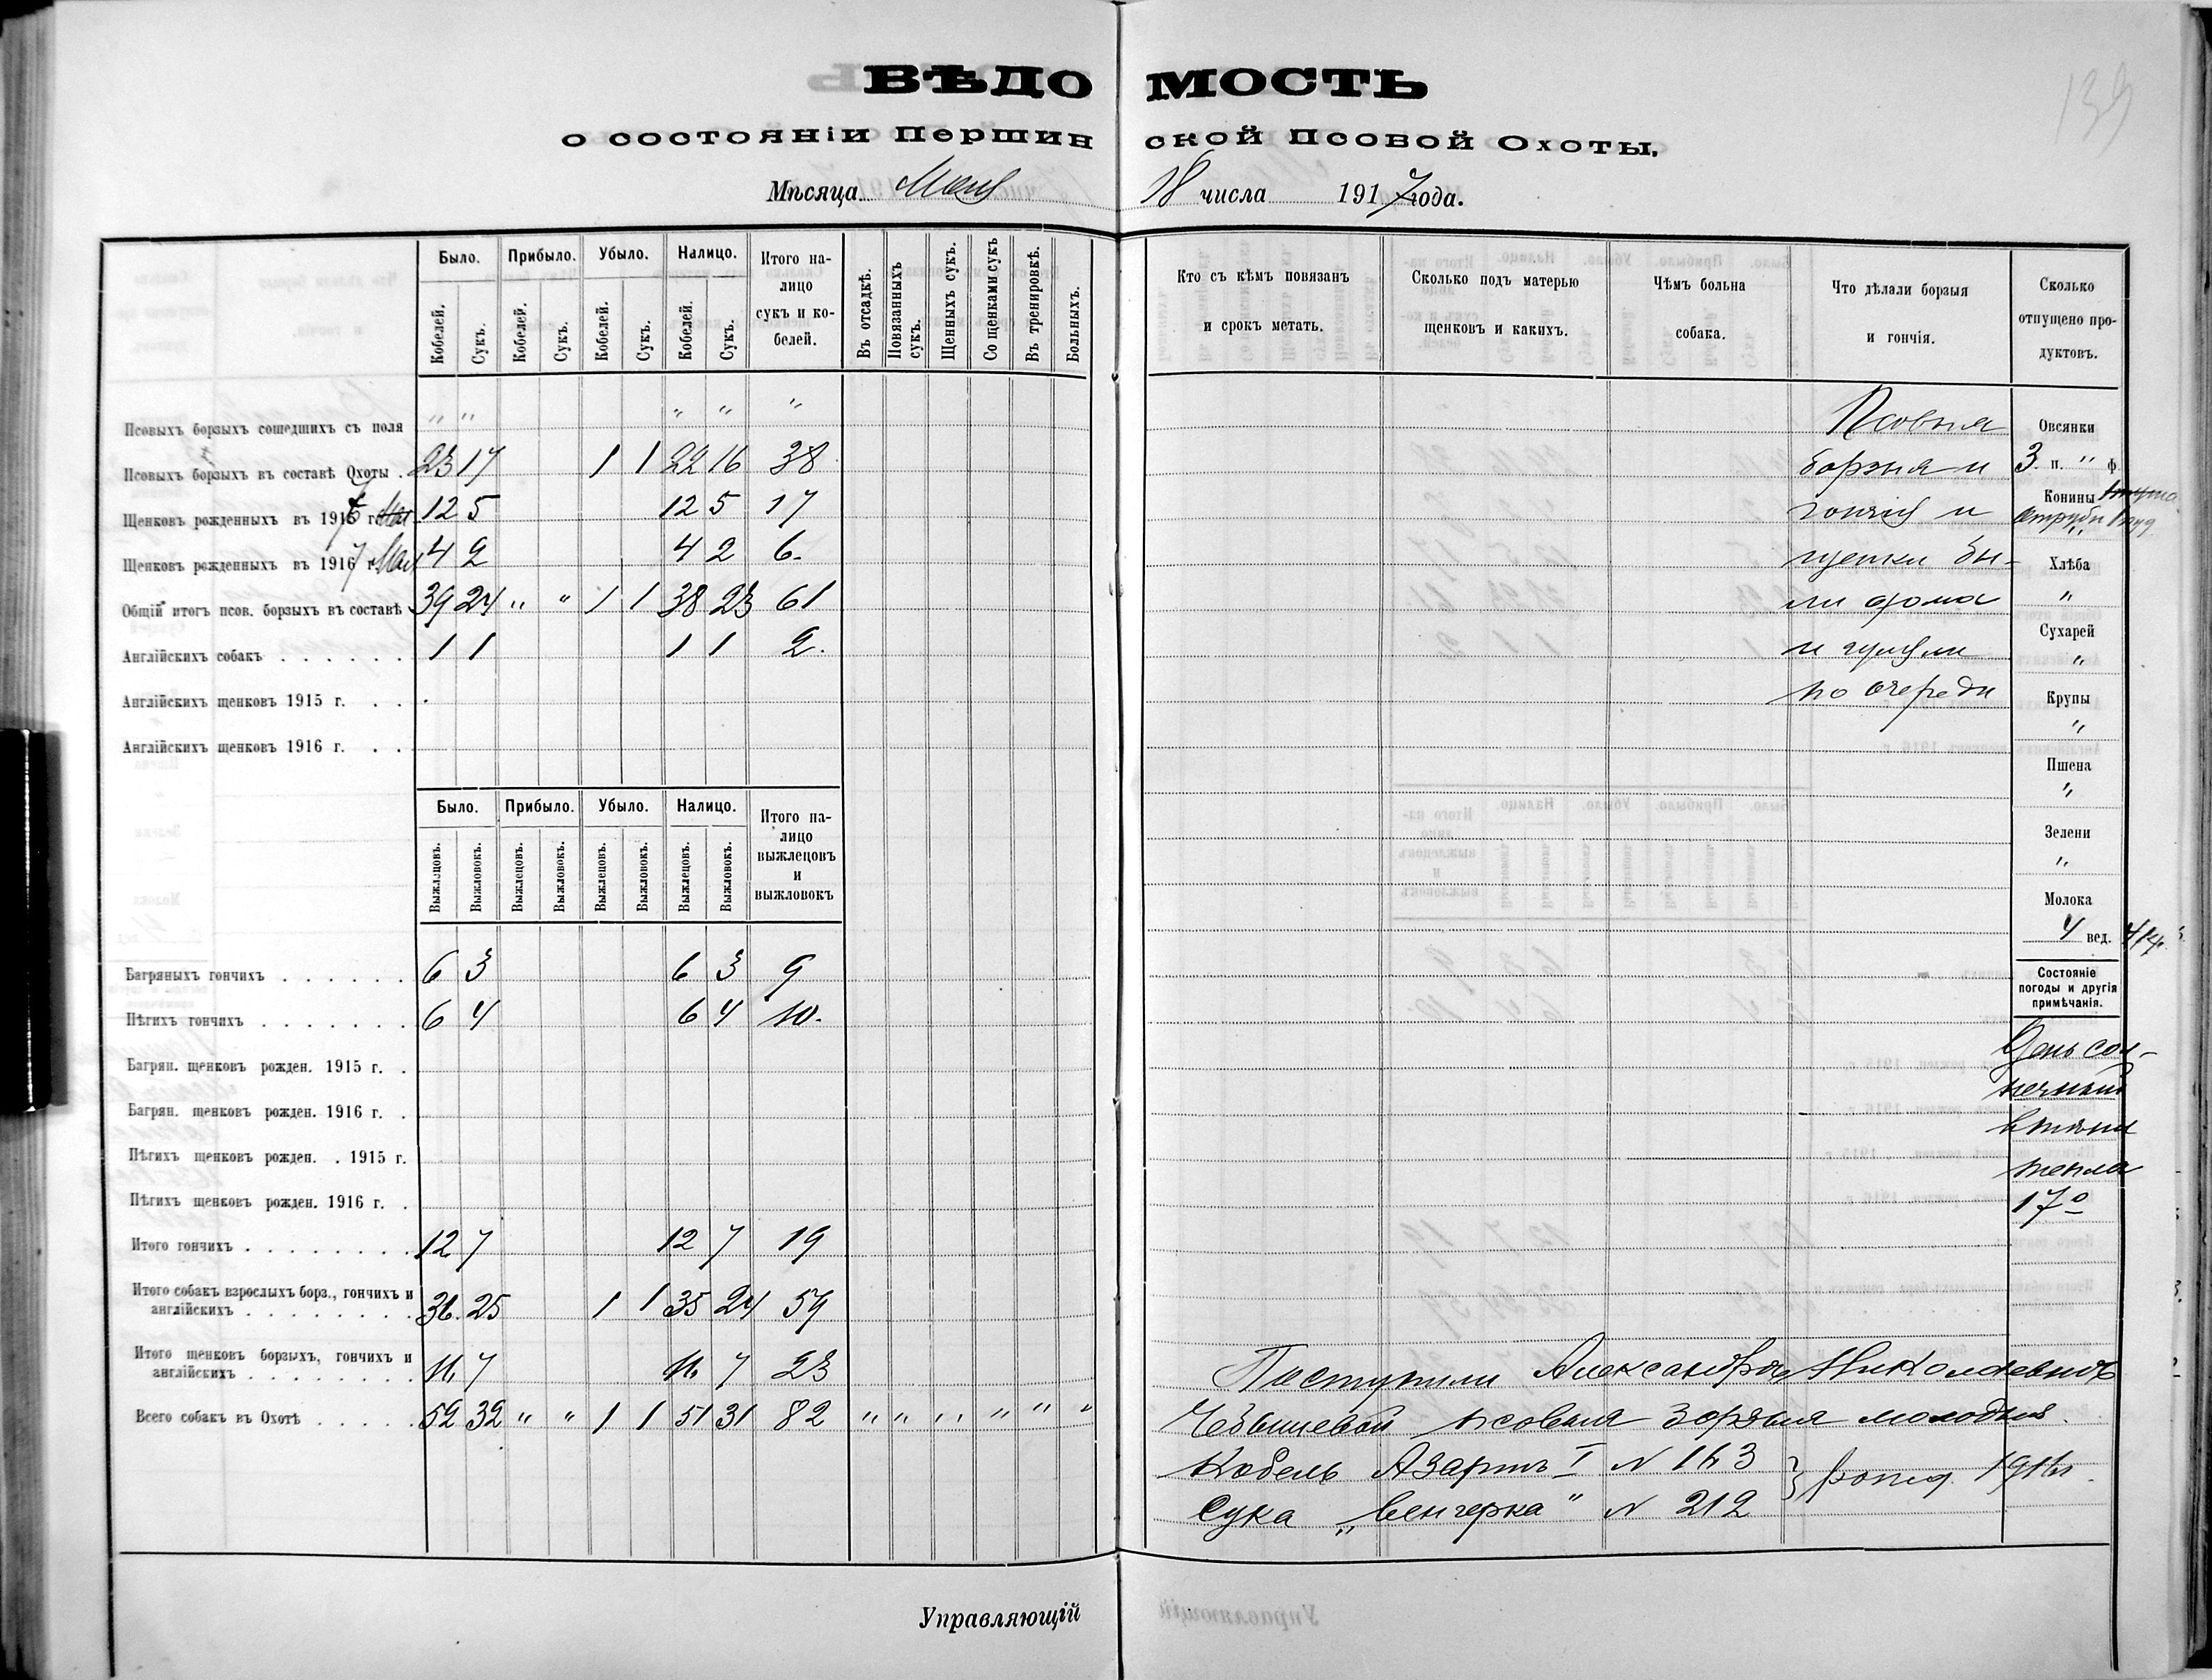 139
ВѢДОМОСТЬ
о состояніи Першинской Псовой Охоты.
Мѣсяца Мая 18 числа 1917 года.
Было. Прибыло. Убыло. Налицо. Итого налицо сукъ и кобелей. Въ отсадкѣ. Повязанныхъ сукъ. Щенныхъ сукъ. Со щенками сукъ Въ тренировкѣ. Больныхъ.
Кобелей. Сукъ. Кобелей. Сукъ. Кобелей. Сукъ. Кобелей. Сукъ.
Псовыхъ борзыхъ сошедшихъ съ поля " " " " "
Псовыхъ борзыхъ въ составѣ Охоты . 23 17 1 1 22 16 38
Щенковъ рожденныхъ въ 1916 г. 12 5 12 5 17
Щенковъ рожденныхъ въ 1917 г. Мая 4 2 4 2 6.
Общій итогъ псов. борзыхъ въ составѣ 39 24 " " 1 1 38 23 61
Англійскихъ собакъ . . . . . . 1 1 1 1 2.
Англійскихъ щенковъ 1915 г. . .
Англійскихъ щенковъ 1916 г. . .
Было. Прибыло. Убыло. Налицо. Итого налицо выжлецовъ и выжловокъ
Выжлецовъ. Выжловокъ. Выжлецовъ. Выжловокъ. Выжлецовъ. Выжловокъ. Выжлецовъ. Выжловокъ.
Багряныхъ гончихъ . . . . . . 6 3 6 3 9
Пѣгихъ гончихъ . . . . . . . 6 4 6 4 10.
Багрян. щенковъ рожден. 1915 г. .
Багрян. щенковъ рожден. 1916 г. .
Пѣгихъ щенковъ рожден. . 1915 г.
Пѣгихъ щенковъ рожден. 1916 г. .
Итого гончихъ . . . . . . . . 12 7 12 7 19
Итого собакъ взрослыхъ борз., гончихъ и
англійскихъ . . . . . . . . 36 25 1 1 35 24 59
Итого щенковъ борзыхъ, гончихъ и
англійскихъ . . . . . . . . 16 7 16 7 23
Всего собакъ въ Охотѣ . . . . . 52 32 " " 1 1 51 31 82 " " " " " "
Управляющій
Кто съ кѣмъ повязанъ
и срокъ метать.
Сколько подъ матерью
щенковъ и какихъ.
Чѣмъ больна
собака.
Что дѣлали борзыя
и гончія.
Сколько
отпущено про-
дуктовъ.
Псовыя
борзыя и
гончія и
щенки бы-
ли дома
и гуляли
по очереди
Овсянки
3 п. " ф.
Конины
Отруби 1 пуд
"
Хлѣба
"
Сухарей
"
Крупы
"
Пшена
"
Зелени
"
Молока
4 вед.
Состояніе
погоды и другія
примѣчанія.
День сол-
нечный
в тѣни
тепла
17º
Поступили Александрѣ Николаевнѣ
Чебышевой псовыя борзыя молодыя.
Кобель Азартъ I N 163
Сука „Венгерка" N 212
} рожд. 1916 г.